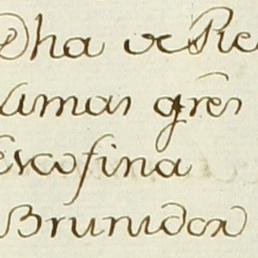 Dha de Re
Limas gres
Escofina
Brunidor